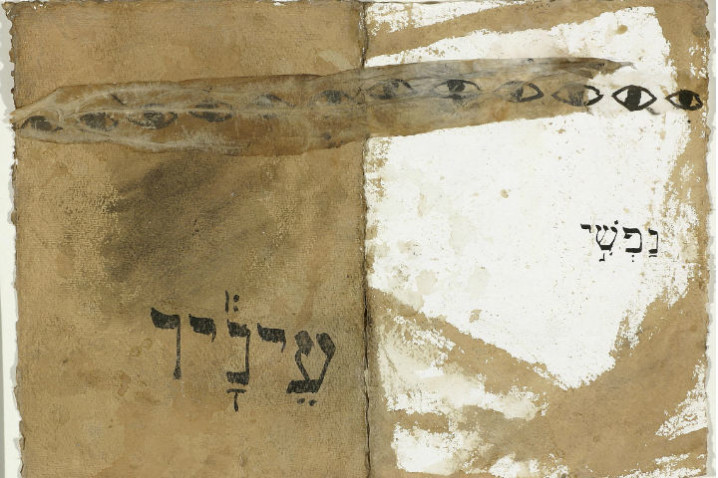 נַפְשִׁי
עֵינָ֕יך